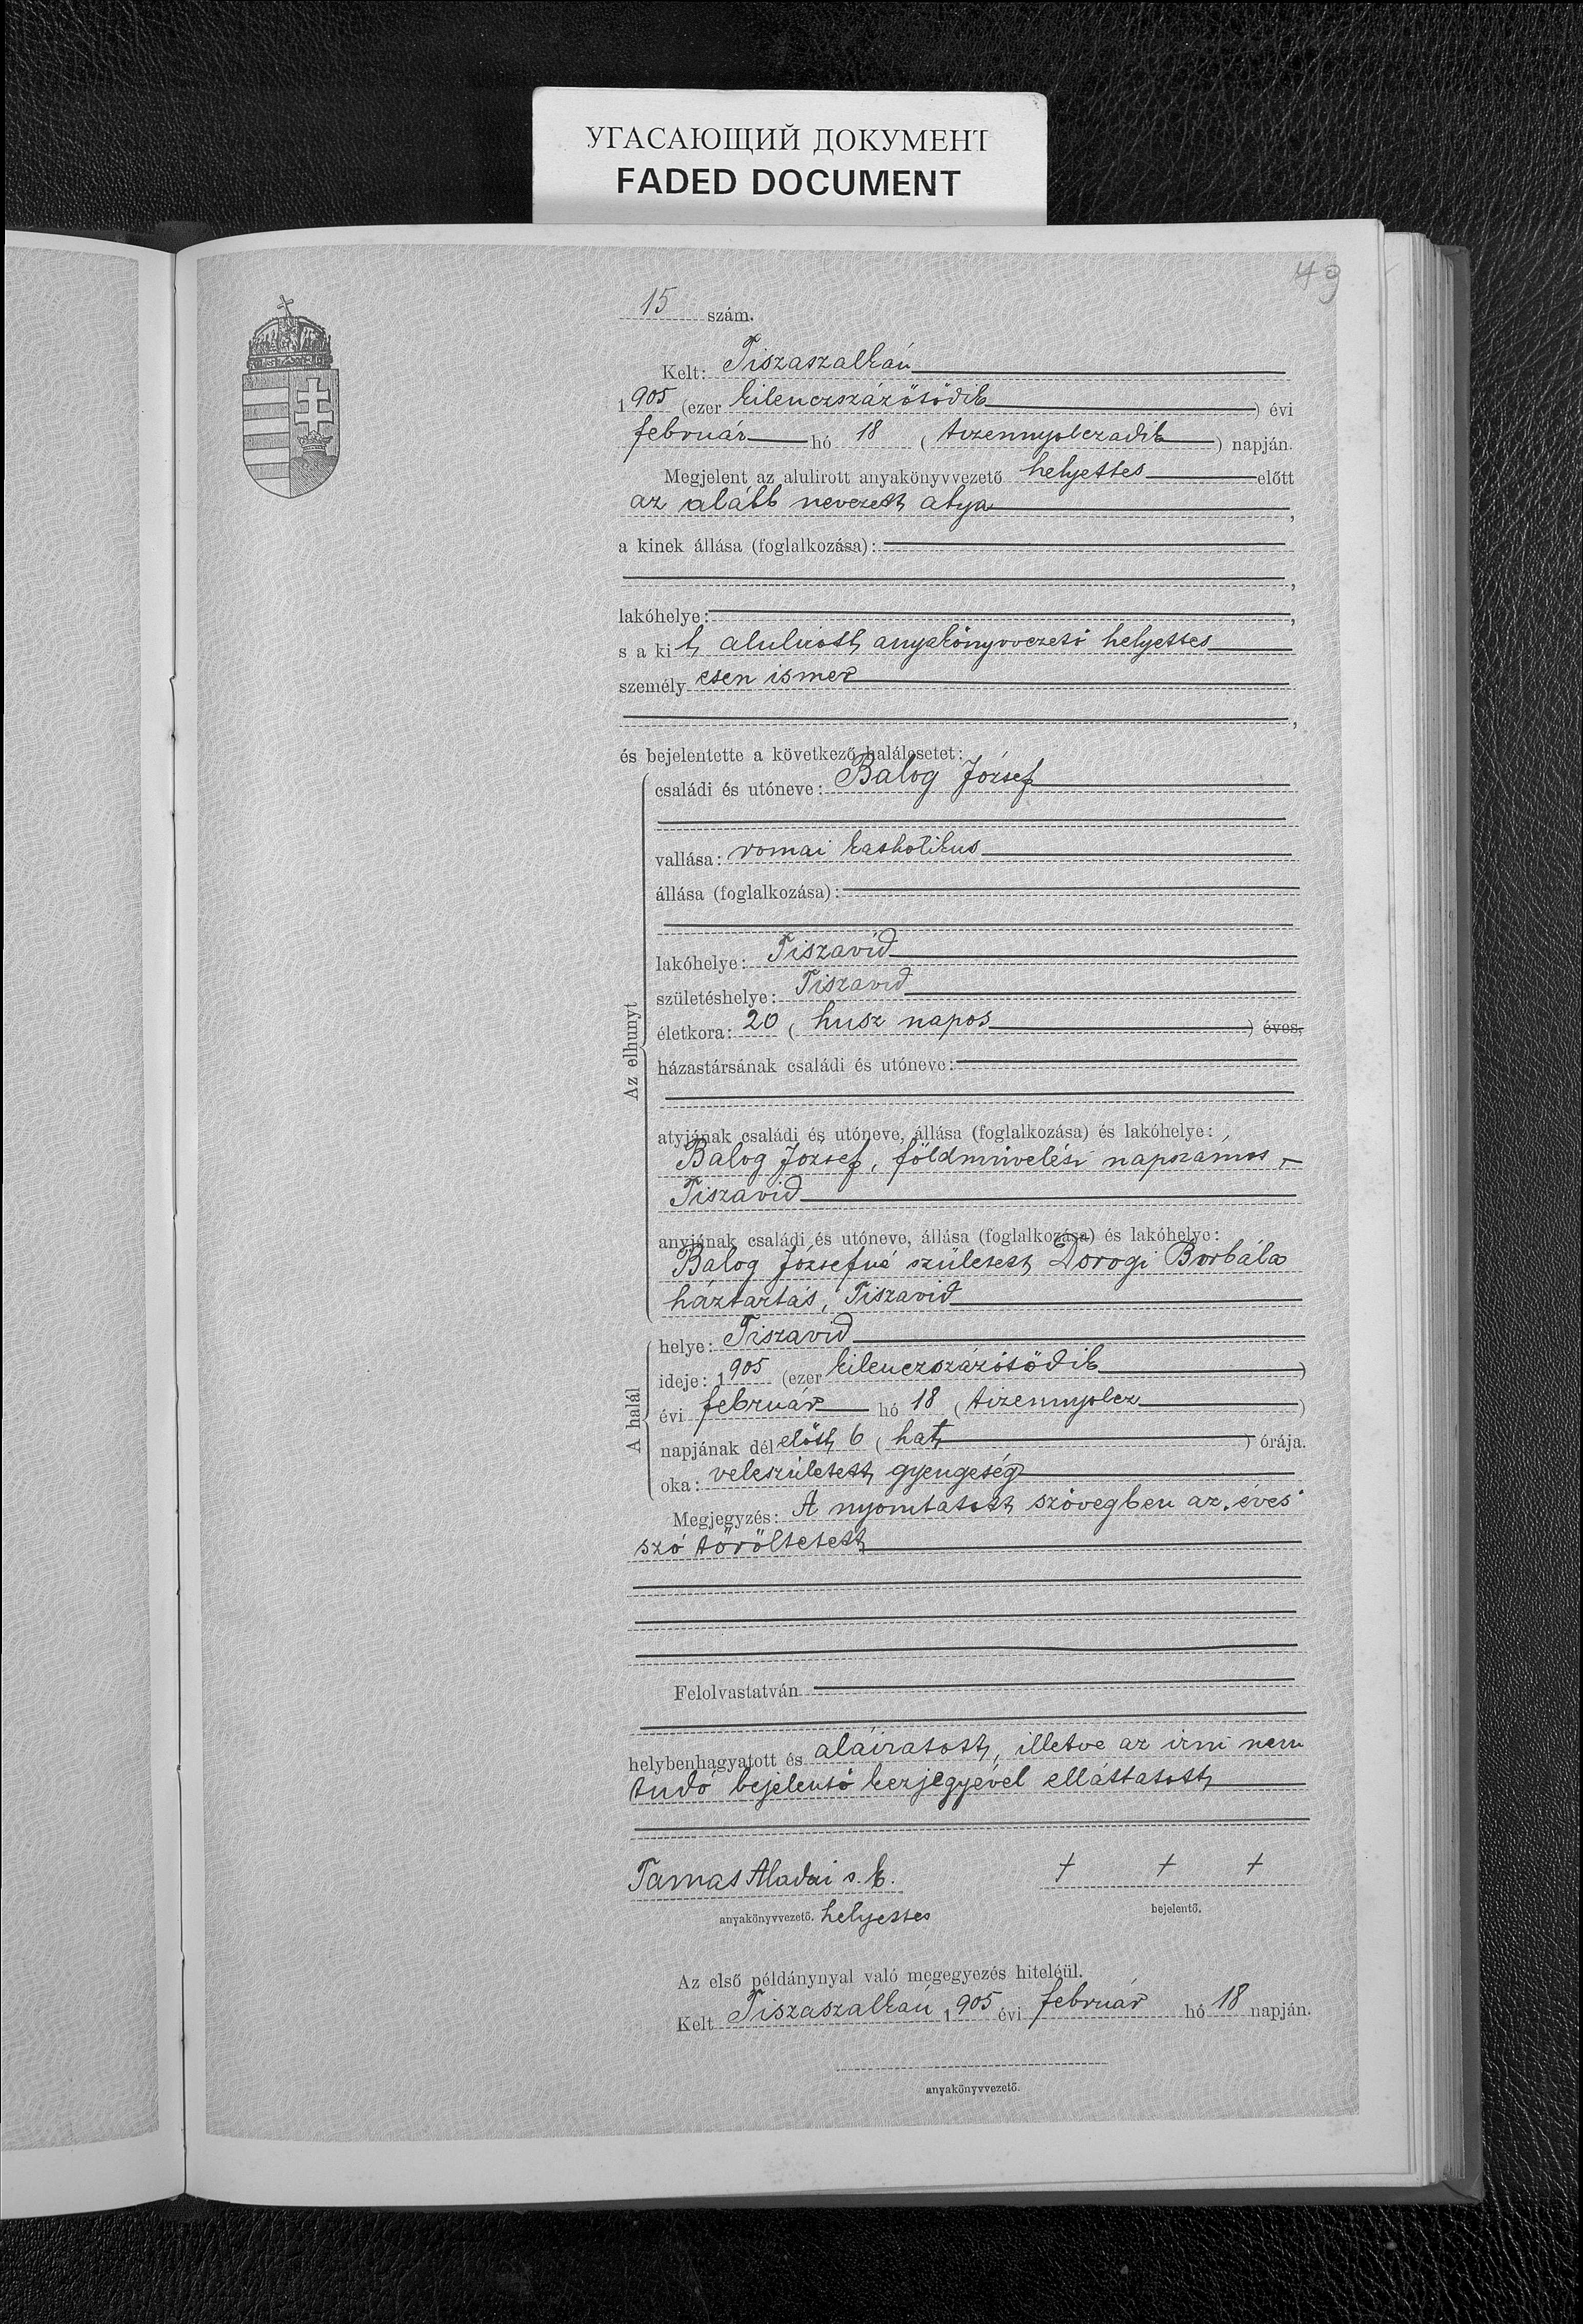 УГАСАЮЩИЙ ДОКУМЕНТ
FADED DOCUMENT
49
15 szám.
Kelt: Tiszaszalkán
1905 (ezer kilenczszázötödik) évi
február hó 18 (tizennyolczadik) napján.
Megjelent az alulirott anyakönyvvezető helyettes előtt
az alább nevezett atya,
a kinek állása (foglalkozása):
,
lakóhelye:,
s a kit alulirott anyakönyvvezető helyettes
személyesen ismer
,
és bejelentette a következő halálesetet:
Az elhunyt
családi és utóneve: Balog József
vallása: romai katholikus
állása (foglalkozása):
lakóhelye: Tiszavid
születéshelye: Tiszavid
életkora: 20 (husz napos) éves,
házastársának családi és utóneve:
atyjának családi és utóneve, állása (foglalkozása) és lakóhelye:
Balog József, földmivelési napszámos,
Tiszavid
anyjának családi és utóneve, állása (foglalkozása) és lakóhelye:
Balog Józsefné született Dorogi Borbála
háztartás, Tiszavid
A halál
helye: Tiszavid
ideje: 1905 (ezer kilenczszázötödik)
évi február hó 18 (tizennyolcz)
napjának délelőtt 6 (hat) órája.
oka: veleszületett gyengeség
Megjegyzés: A nyomtatott szövegben az „éves"
szó töröltetett
Felolvastatván
helybenhagyatott és aláiratott, illetve az irni nem
tudó bejelentő kézjegyével elláttatott
Tamas Aladár s. k. + + +
anyakönyvvezető. helyettes bejelentő.
Az első példánynyal való megegyezés hiteléül.
Kelt Tiszaszalkán 1905 évi február hó 18 napján.
anyakönyvvezető.